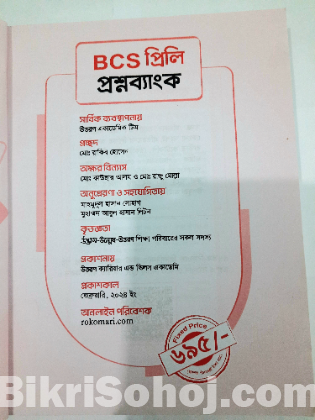 BCS প্রিলি
প্রশ্নব্যাংক
সার্বিক ব্যবস্থাপনায়
উত্তরণ একাডেমিক টিম
প্রচ্ছদ
মোঃ রাকিব হোসেন
অক্ষর বিন্যাস
মোঃ কাউছার আলম ও মোঃ রাজু মোল্লা
অনুপ্রেরণা ও সহযোগিতায়
মাহমুদুল হাসান সোহাগ
মুহাম্মদ আবুল হাসান লিটন
কৃতজ্ঞতা
উদ্ভাস-উন্মেষ-উত্তরণ শিক্ষা পরিবারের সকল সদস্য
প্রকাশনায়
উত্তরণ ক্যারিয়ার এন্ড স্কিলস একাডেমি
প্রকাশকাল
ফেব্রুয়ারি, ২০২৪ ইং
অনলাইন পরিবেশক
rokomari.com
Fixed Price
৬৯৫/-
BikriSohoj.com